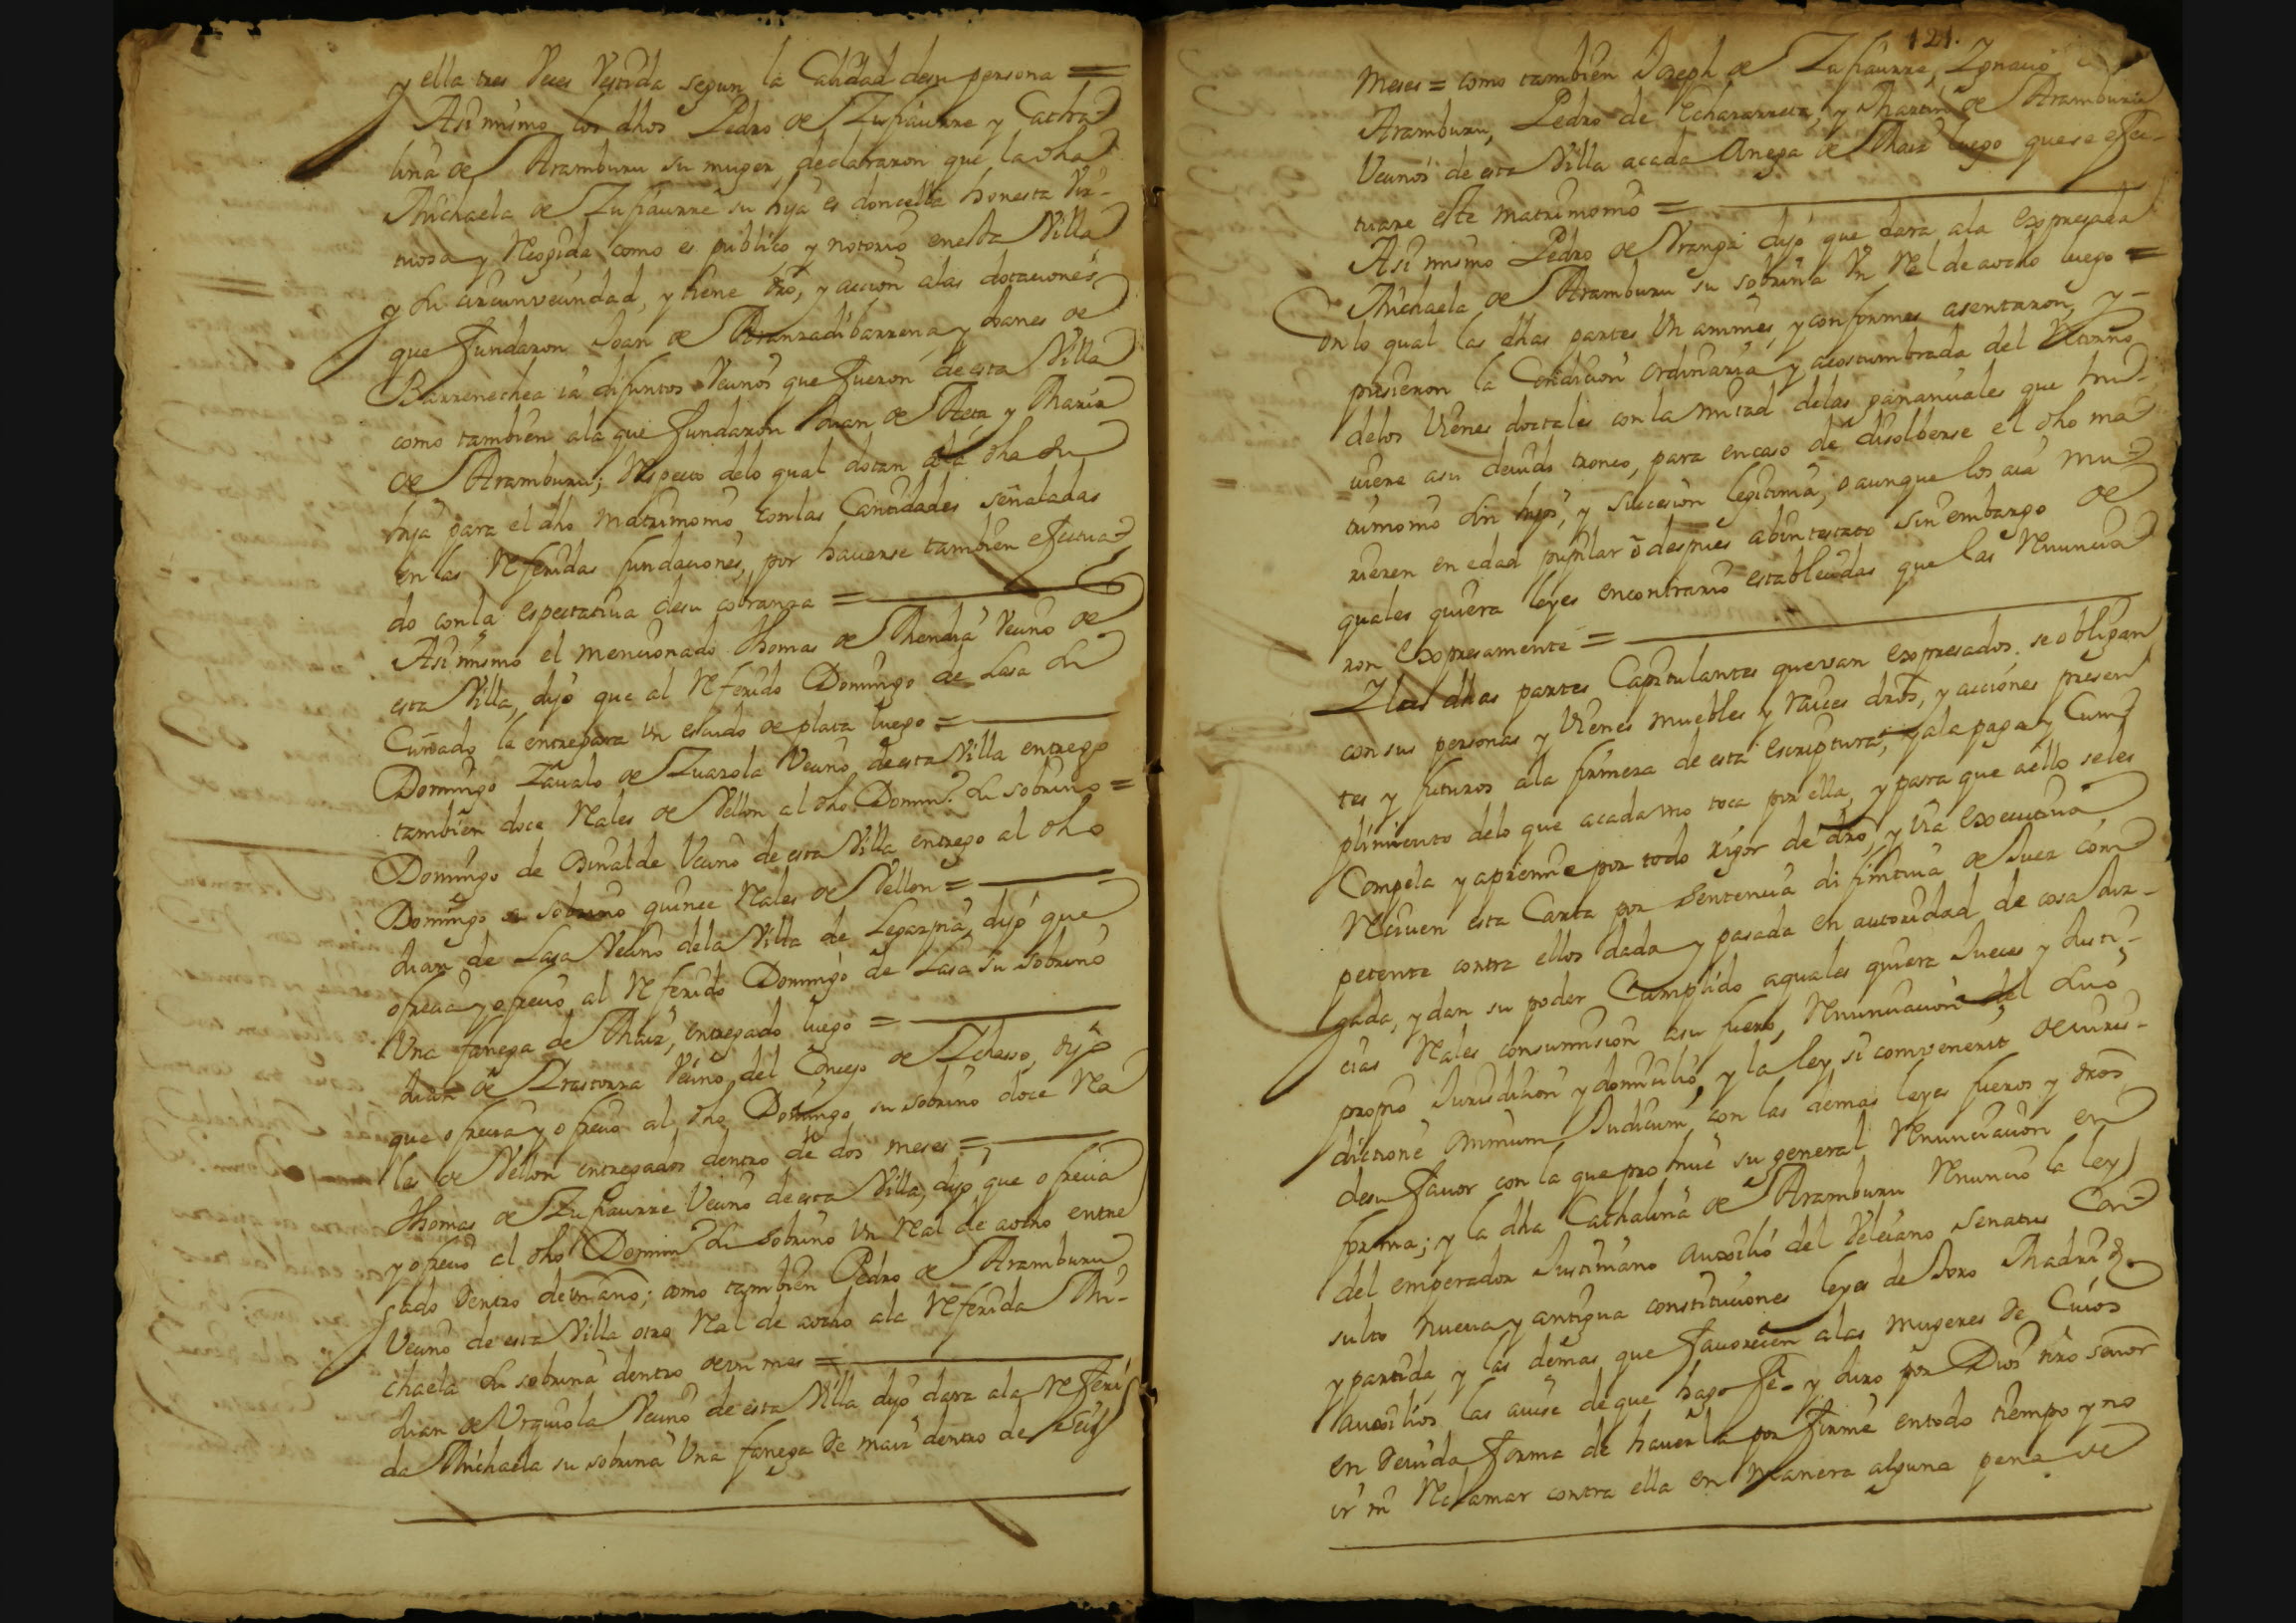 y ella tres Veces Vestida segun la Calidad desu persona =
Asi mismo los dhos Pedro de Zufiaurre y Catha
lina de Aramburu su muger, declararon que la dha
Michaela de Zufiaurre su hija es doncella honesta Vir-
tuosa y Recogida como es publico y notorio en esta Villa
y su circunvecindad, y tiene dro, y accion alas dotaciones
que fundaron Joan de Aranzadibarrena y Joanes de
Barrenechea ia difuntos Vecinos que fueron de esta Villa
como también ala que fundaron Juan de y Maria
de Aramburu; Respecto delo qual dotan ala dha su
hija para el dho matrimonio con las Cantidades señaladas
en las Referidas fundaciones, por hauerse también efectua
do con la espectatiua desu cobranza =
Asi mismo el mencionado Thomas de Mendia Vecino de
esta Villa, dijo que al Referido Domingo de Lasa su
Cuñado le entregara Un escudo de plata luego =
Domingo Zaualo de Zuazola Vecino de esta Villa entrego
también doce Rales de Vellon al dho Domin.º su sobrino =
Domingo de Vecino de esta Villa entrego al dho
Domingo su sobrino quince Rales de Vellon =
Juan de Lasa Vecino dela Villa de Legazpia, dijo que
ofrecia y ofrecio al Referido Domingo de Lasa su sobrino
Una fanega de Maiz, entregado luego =
Juan de Vecino del Concejo de Ichasso, dijo
que ofrecia y ofrecio al dho Domingo su sobrino doce Ra
les de Vellon entregados dentro de dos meses =
Thomas de Zufiaurre Vecino de esta Villa, dijo que ofrecia
y ofrecio al dho Domin.º su sobrino Un Real de aocho entre
gado dentro de un año; como también Pedro de Aramburu
Vecino de esta Villa otro Real de aocho ala Referida Mi-
chaela su sobrina dentro de un mes =
Juan de Urquiola Vecino de esta Villa dijo dara ala Referi
da Michaela su sobrina Una fanega de maiz dentro de seis
121.
Meses = como también Joseph de Zufiaurre, Ignacio
Aramburu, Pedro de Echararreta, y Martin de Aramburu
Vecinos de esta Villa acada Anega de Maiz luego que se efec-
tuare este matrimonio =
Asi mismo Pedro de dijo que dara ala Expresada
Michaela de Aramburu su sobrina Un Real de aocho luego =
En lo qual las dhas partes Unanimes, y conformes asentaron, y -
pusieron la Condicion ordinaria y acostumbrada del Retorno
delos Vienes dotales con la mitad delas que hu-
uiere asu deuido tronco, para en caso de disolberse el dho ma
trimonio sin hijos, y succesion legitima, o aunque los aia mu
rieren en edad pupilar ô despues abintestato sin embargo de
quales quiera leyes en contrario establecidas que las Renuncia
ron Expresamente =
I las dhas partes Capitulantes que van Expresados se obligan
con sus personas y Vienes muebles y raices dros, y acciones presen
tes y futuros ala firmeza de esta escriptura, y ala paga y Cum
plimiento delo que acada uno toca por ella, y para que aello seles
Compela y apremie por todo rigor de dro, y via executiua
Reciuen esta Carta por Sentencia difinitiua de Juez com
petente contra ellos dada y pasada en autoridad de cosa Juz-
gada, y dan su poder Cumplido aquales quiera Jueces y Justi-
cias Rales con sumision asu fuero, Renunciacion del suio
propio Jurisdicion y domicilio, y la ley si convenerit de iuris-
dictione omnium Judicum, con las demas leyes fueros y dros
desu fauor con la que prohiue su general Renunciacion en
forma; y la dha Cathalina de Aramburu Renuncio la ley
del emperador Justiniano auxilio del Veleiano Senatus Con
sulto nueua y antigua constituciones leyes de Toro Madrid
y partida y las demas que fauorecen alas mugeres de Cuios
auxilios las auise de que hago fe - y Juro por Dios nro señor
en deuida forma de hauerla por firme en todo tiempo y no
ir ni Reclamar contra ella en manera alguna pena de